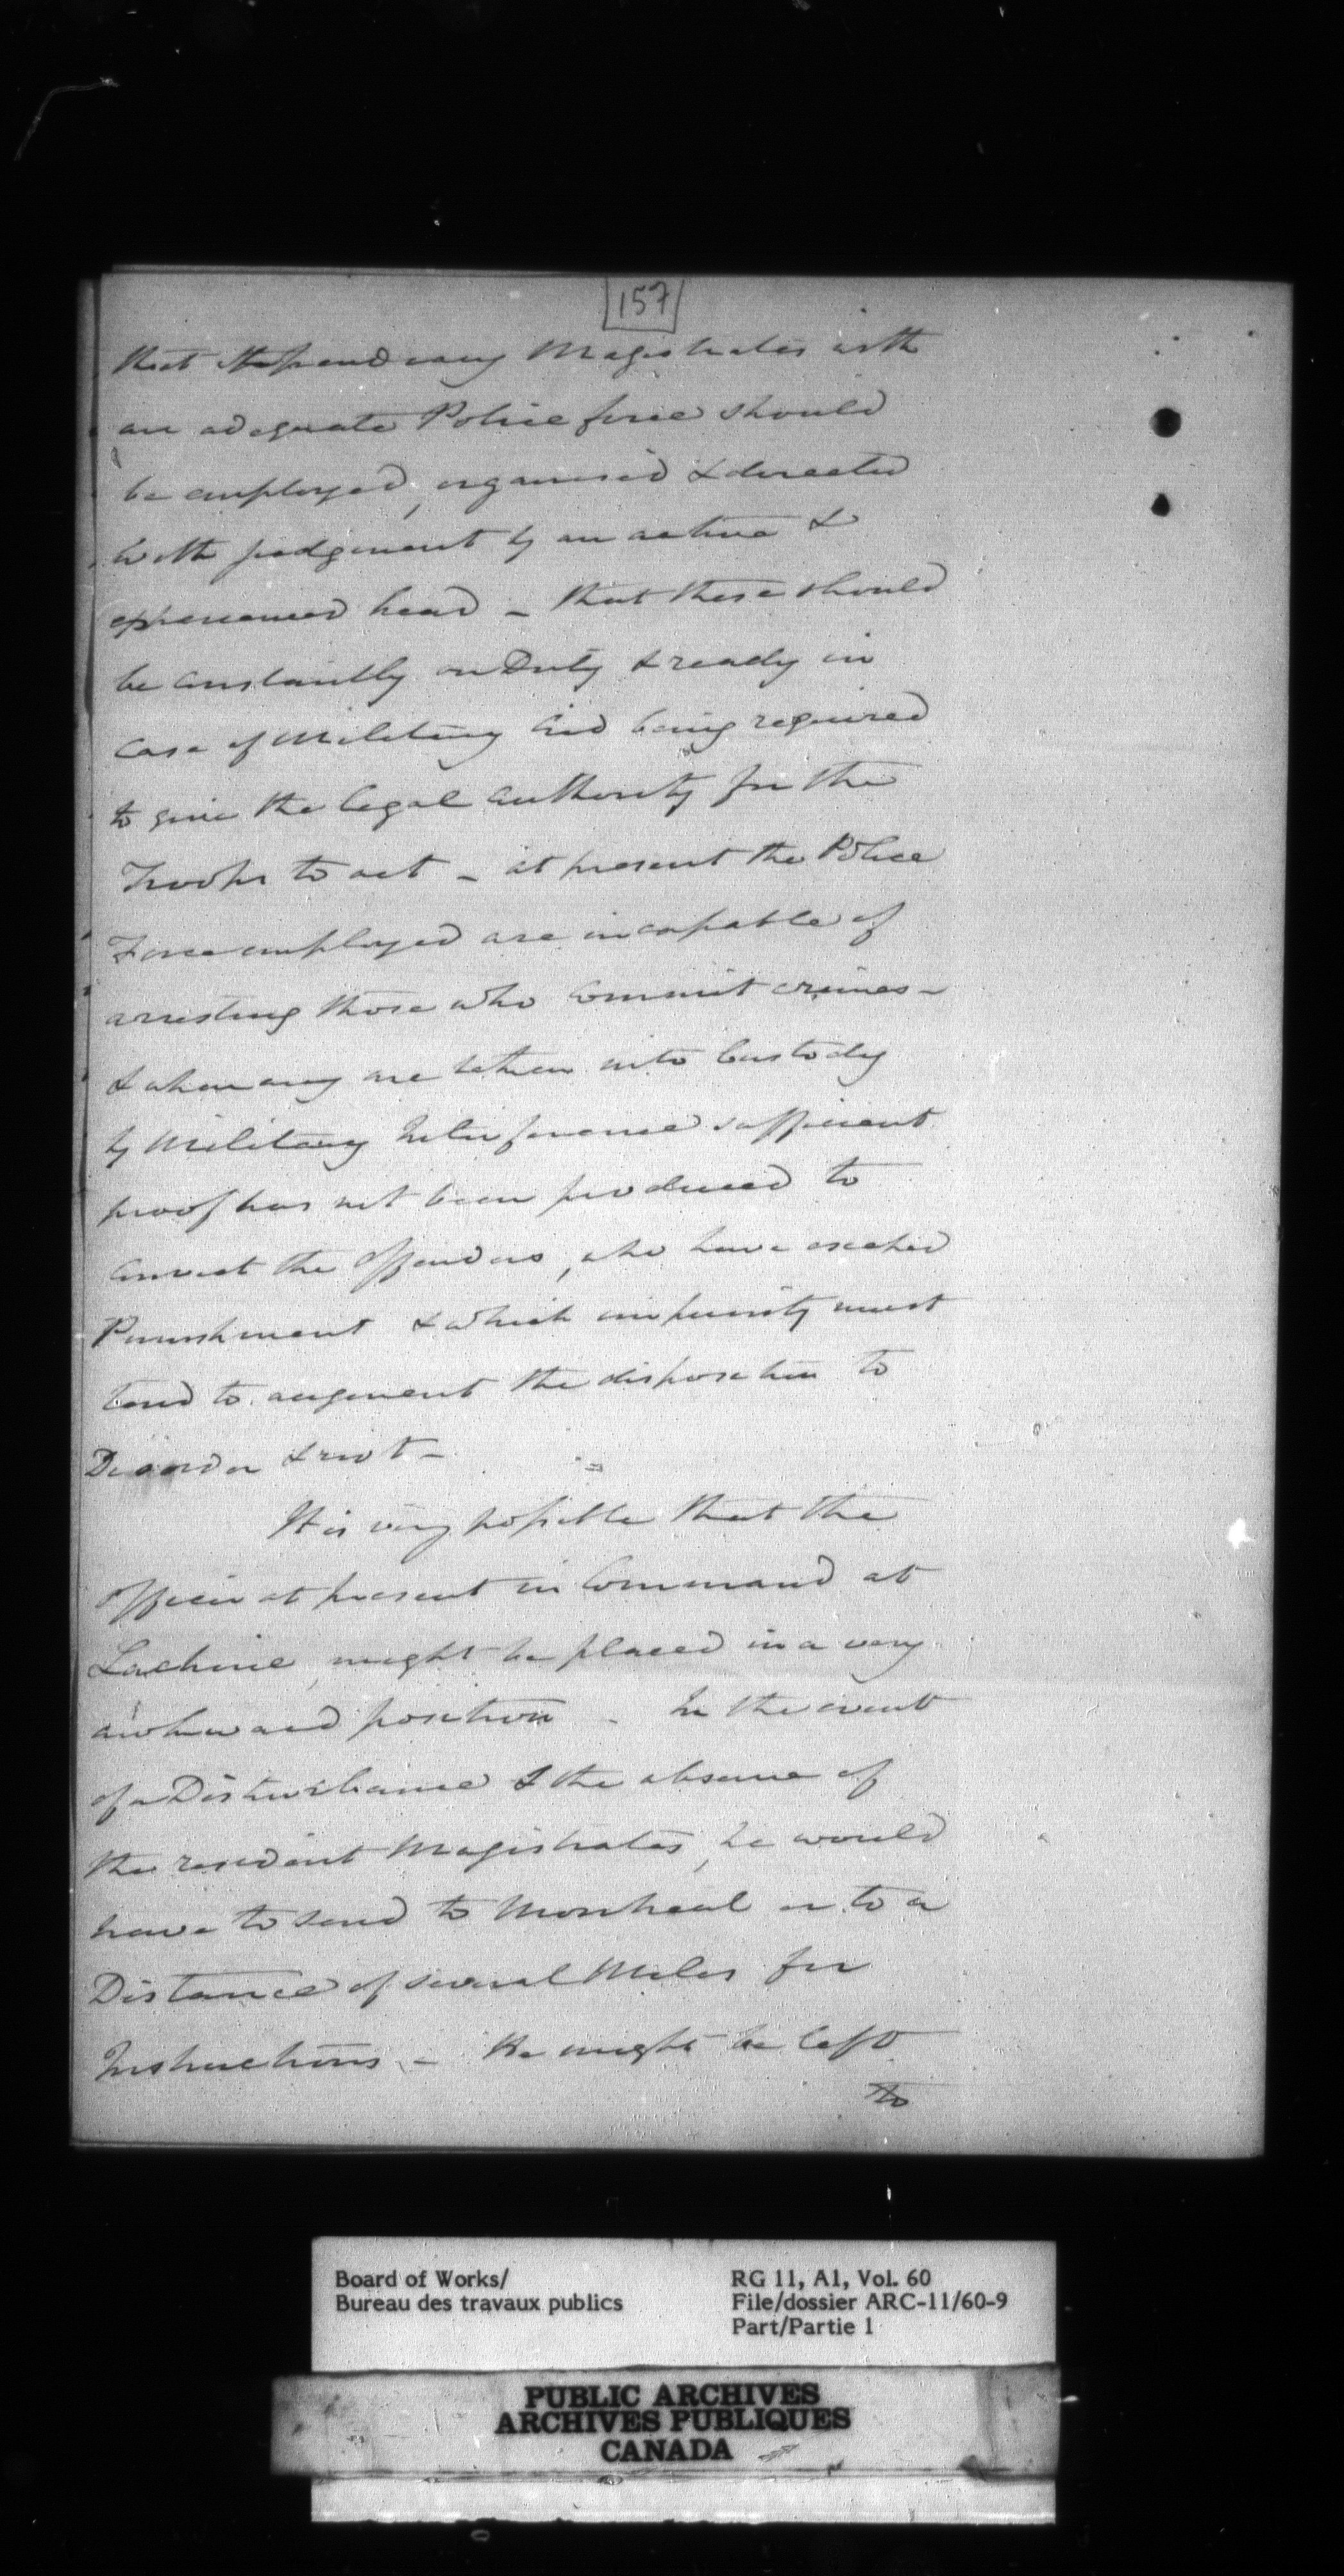 157
that Stipendiary Magistrates with
an adequate Police force should
be employed, organised & directed
with judgement by an active &
experienced head – that these should
be constantly on Duty & ready in
case of Military Aid being required
to give the legal authority for the
Troops to act – at present the Police
Force employed are incapable of
arresting those who commit crimes –
& when any are taken into Custody
by Military Interference sufficient
proof has not been produced to
convict the offenders, who have escaped
Punishment & which impunity must
tend to augment the disposition to
Disorder & riot –
It is very possible that the
officer at present in Command at
Lachine, might be placed in a very
awkward position – In the event
of a Disturbance & the absence of
the resident Magistrates, he would
have to send to Montreal or to a
Distance of several Miles for
Instructions – He might be left
to
Board of Works/
Bureau des travaux publics
RG 11, A1, Vol. 60
File/dossier ARC-11/60-9
Part/Partie 1
PUBLIC ARCHIVES
ARCHIVES PUBLIQUES
CANADA